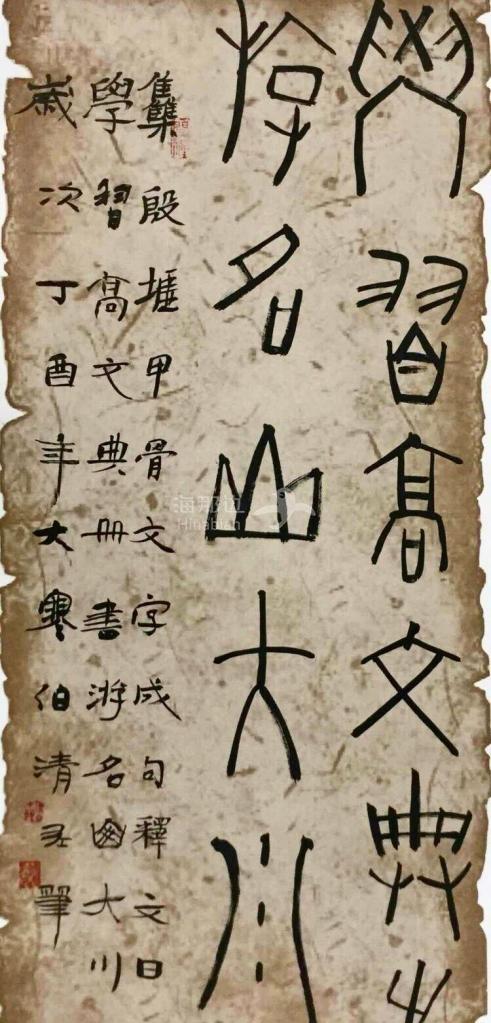 學習高文典
游名山大川
集殷墟甲骨文字成句釋文曰
學習高文典冊書游名山大川
歲次丁酉年大寒伯清筆
海那边
Hinabian